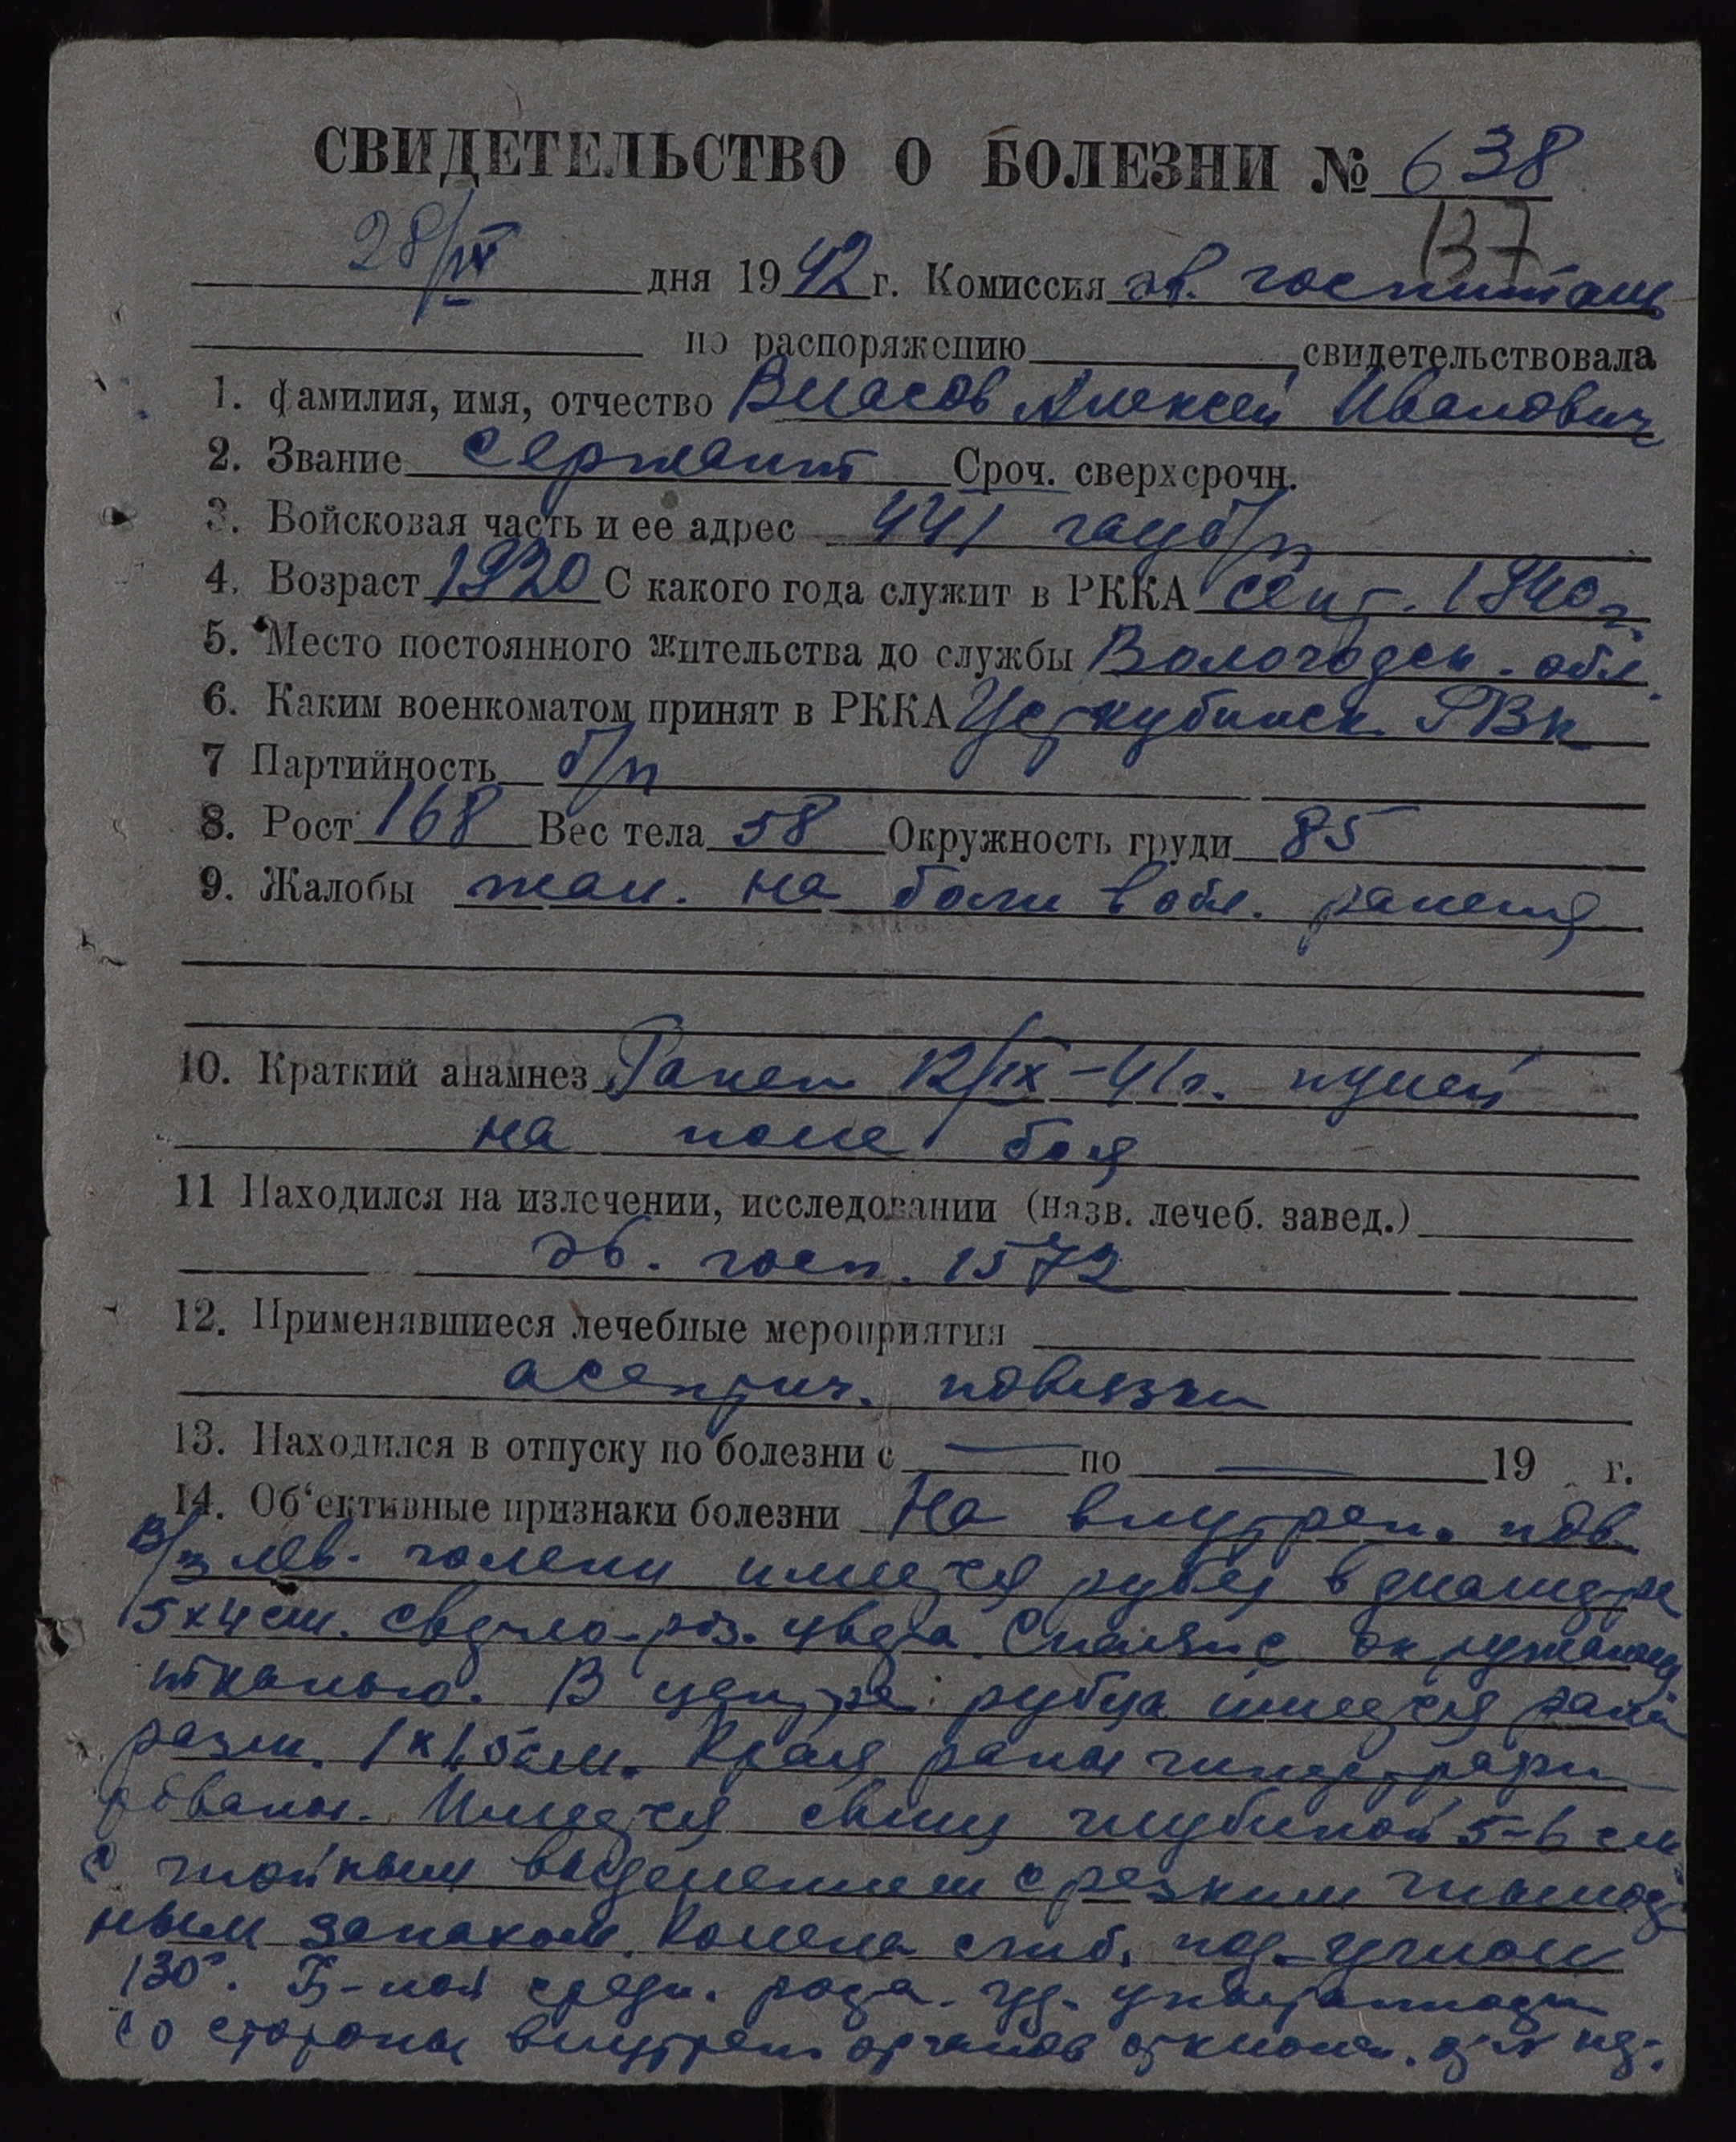 СВИДЕТЕЛЬСТВО О БОЛЕЗНИ № 638
137
28/IV дня 1942 г. Комиссия эв. госпиталь
по распоряжению свидетельствовала
1. фамилия, имя, отчество Власов Алексей Иванович
2. Звание сержант Сроч. сверхсрочн.
3. Войсковая часть и ее адрес 441 гауб/п
4. Возраст 1920 С какого года служит в РККА сент. 1940 г.
5. Место постоянного жительства до службы Вологодск. обл.
6. Каким военкоматом принят в РККА Усткубинск. РВК
7 Партийность б/п
8. Рост 168 Вес тела 58 Окружность груди 85
9. Жалобы жал. на боли в обл. ранения
10. Краткий анамнез Ранен 12/IX-41 г. пулей
на поле боя
11 Находился на излечении, исследовании (назв. лечеб. завед.)
эв. госп. 1572
12. Применявшиеся лечебные мероприятия
асептич. повязки
13. Находился в отпуску по болезни с — по — 19 г.
14. Об'ективные признаки болезни На внутрен. пов.
в/з лев. голени имеется рубец в диаметре
5х4 см. светло-роз. цвета. Спаян с окружающ
тканью. В центре рубца имеется рана
разм. 1х1,5 см. Края раны
Имеется свищ глубиной 5-6 см
с гнойным выделением с резким гнилост
ным запахом. Колено сгиб. под углом
130°. Б-ной средн. роста. уд. упитанности
со стороны внутрен. органов отклон. от N нет.